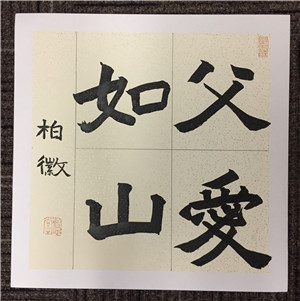 父愛
如山
柏徽